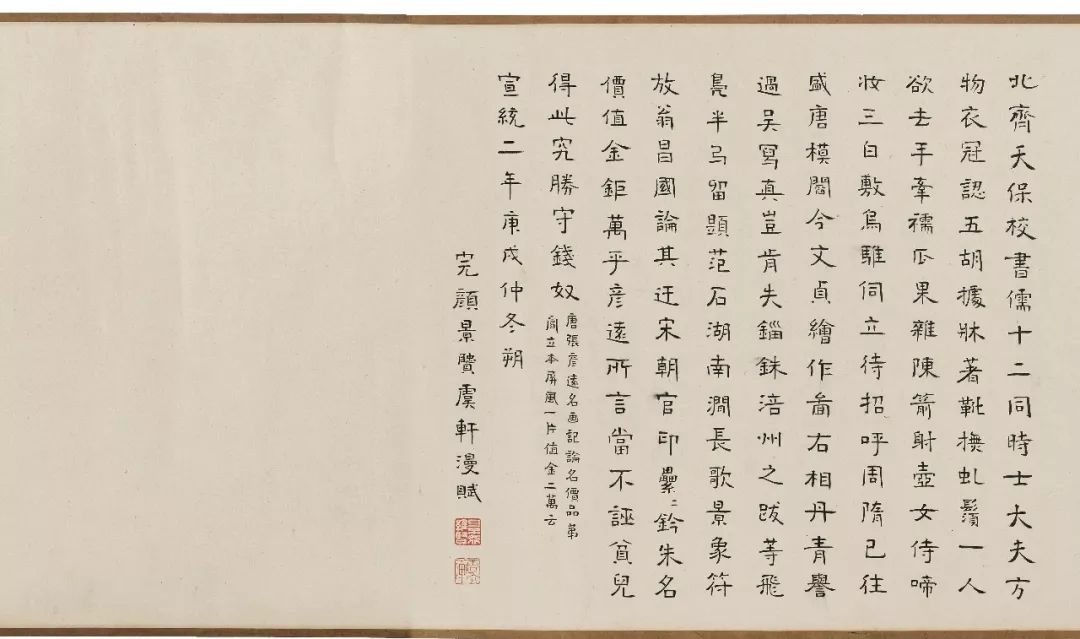 北齊天保校書儒十二同時士大夫方
物衣冠認五胡據牀著靴撫虬鬚一人
欲去手牽襦瓜果雜陳箭射壺女侍啼
妝三白敷烏騅伺立待招呼周隋已往
盛唐模閻令文貞繪作啚右相丹青譽
過吳寫真豈肯失錙銖涪州之跋等飛
鳧半留題范石湖南澗長歌景象符
放翁昌國論其迂宋朝官印纍〻鈐朱名
價值金鉅萬乎彥遠所言當不誣貧兒
得此究勝守錢奴
唐張彥遠名画記論名價品第
閻立本屏風一片值金二萬云
宣統二年庚戌仲冬朔
完顏景賢虞軒漫賦